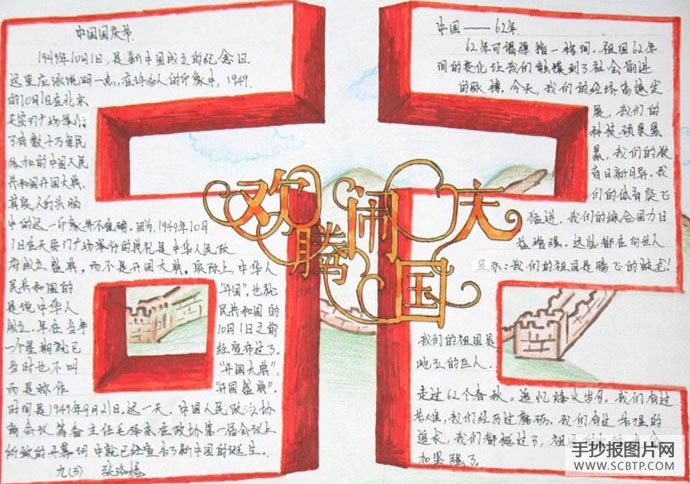 中国国庆节
1949年10月1日,是新中国成立的纪念日.
这里应该说明一点,在许多人的印象中,1949.
的10月1日在北京
天安门广场举行
了有数十万军民
参加的中国人民
共和国开国大典.
其实人们头脑
中的这一印象并不准确.因为,1949年10月
1日在天安门广场举行的典礼是中华人民政
府成立盛典,而不是开国大典.实际上,中华人
民共和国的
"开国".也就
是说中华人
民共和国的
成立,早在当年
10月1日之前
一个星期就已
经宣布过了.
当时也不叫
"开国大典".
而是称作
"开国盛典".
时间是1949年9月21日.这一天.中国人民政治协
商会议筹备主任毛泽东在政协第一届会议上
所致的开幕词中就已经宣告了新中国的诞生.
九(3)
中国——62年
62年可谓弹指一挥间.祖国62年
间的变化让我们触摸到了社会前进
的脉搏,今天,我们的经济高速发
展,我们的
科技硕果累
累,我们的教
育日新月异.我
们的体育突飞
猛进.我们的综合国力日
益增强.这些都在向世人
昭示:我们的祖国是腾飞的巨龙!
我们的祖国是
屹立的巨人.
走过62个春秋.追忆烽火岁月,我们有过
苦难,我们经历过磨砺,我们有过苦涩的
追求,我们都挺过了,
和坚强了.
欢腾闹国庆
手抄报图片网
WWW.SCBTP.COM